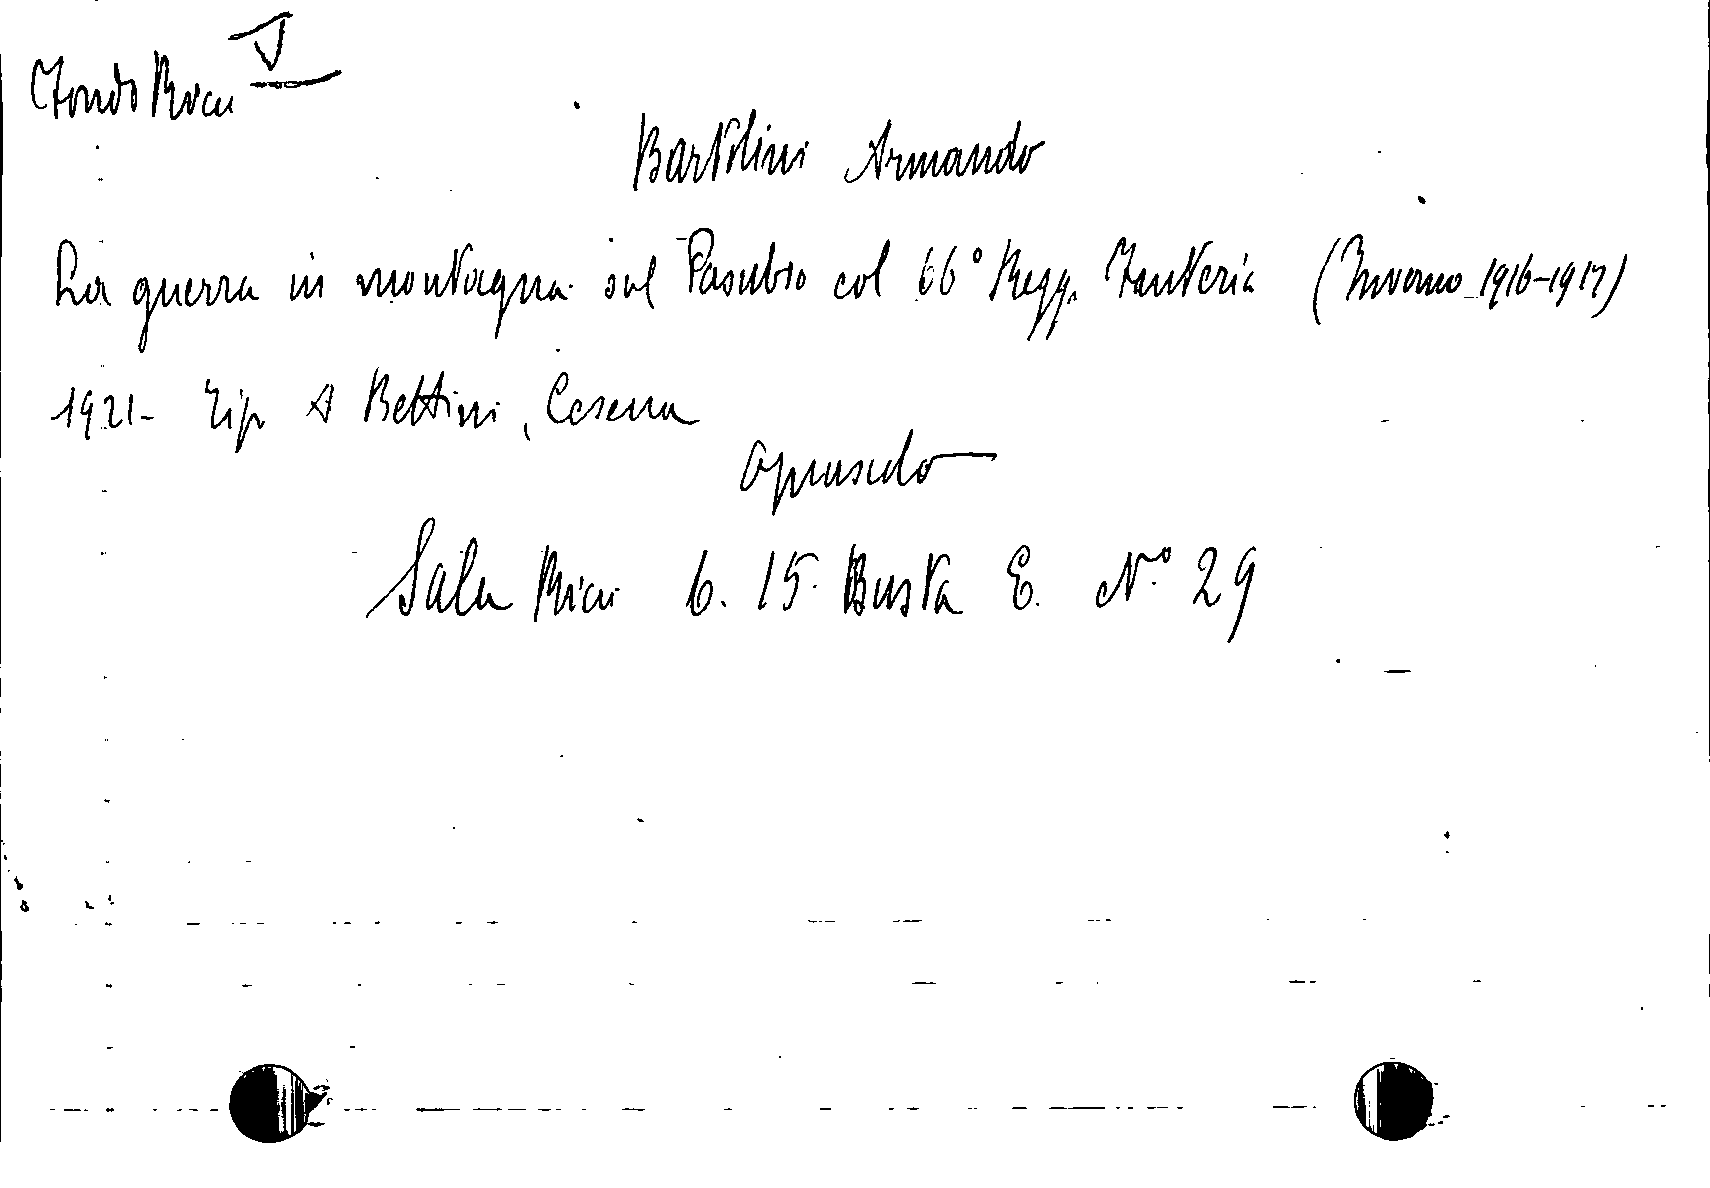 V
Fondo Ricci
Bartolini Armando
La guerra in montagna sul Pasubio col 66° Regg. Fanteria (Inverno 1916-1917)
1921- Tip A Bettini, Cesena
opuscolo
Sala Ricci 6. 15. Busta E. N.° 29